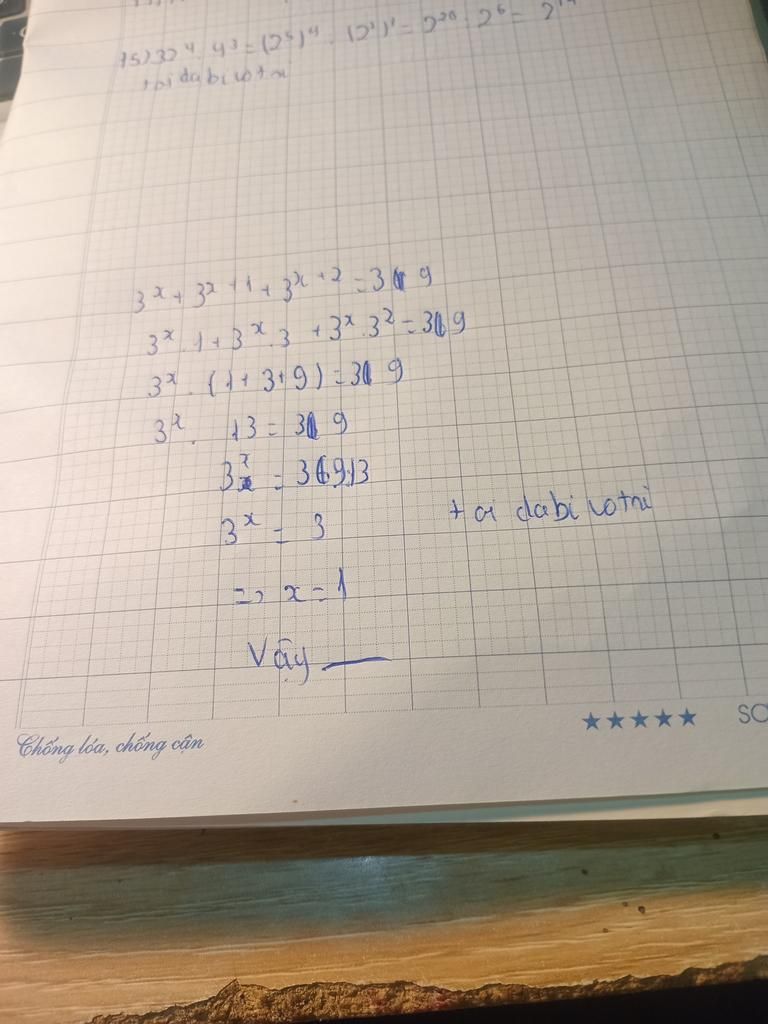 15) 32⁴ . 4³ = (2⁵)⁴ . (2²)³ = 2²⁰ . 2⁶ =
+ oi dabi votri
3ˣ + 3ˣ⁺¹ + 3ˣ⁺² = 39
3ˣ . 1 + 3ˣ . 3 + 3ˣ . 3² = 39
3ˣ . (1 + 3 + 9) = 39
3ˣ . 13 = 39
3ˣ = 39:13
3ˣ = 3
+ oi dabi votri
=> x = 1
Vậy
Chống lóa, chống cận
★★★★★ SO